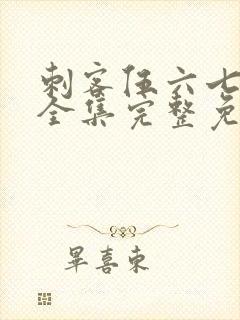 刺客伍六七
全集完整免
畢喜东